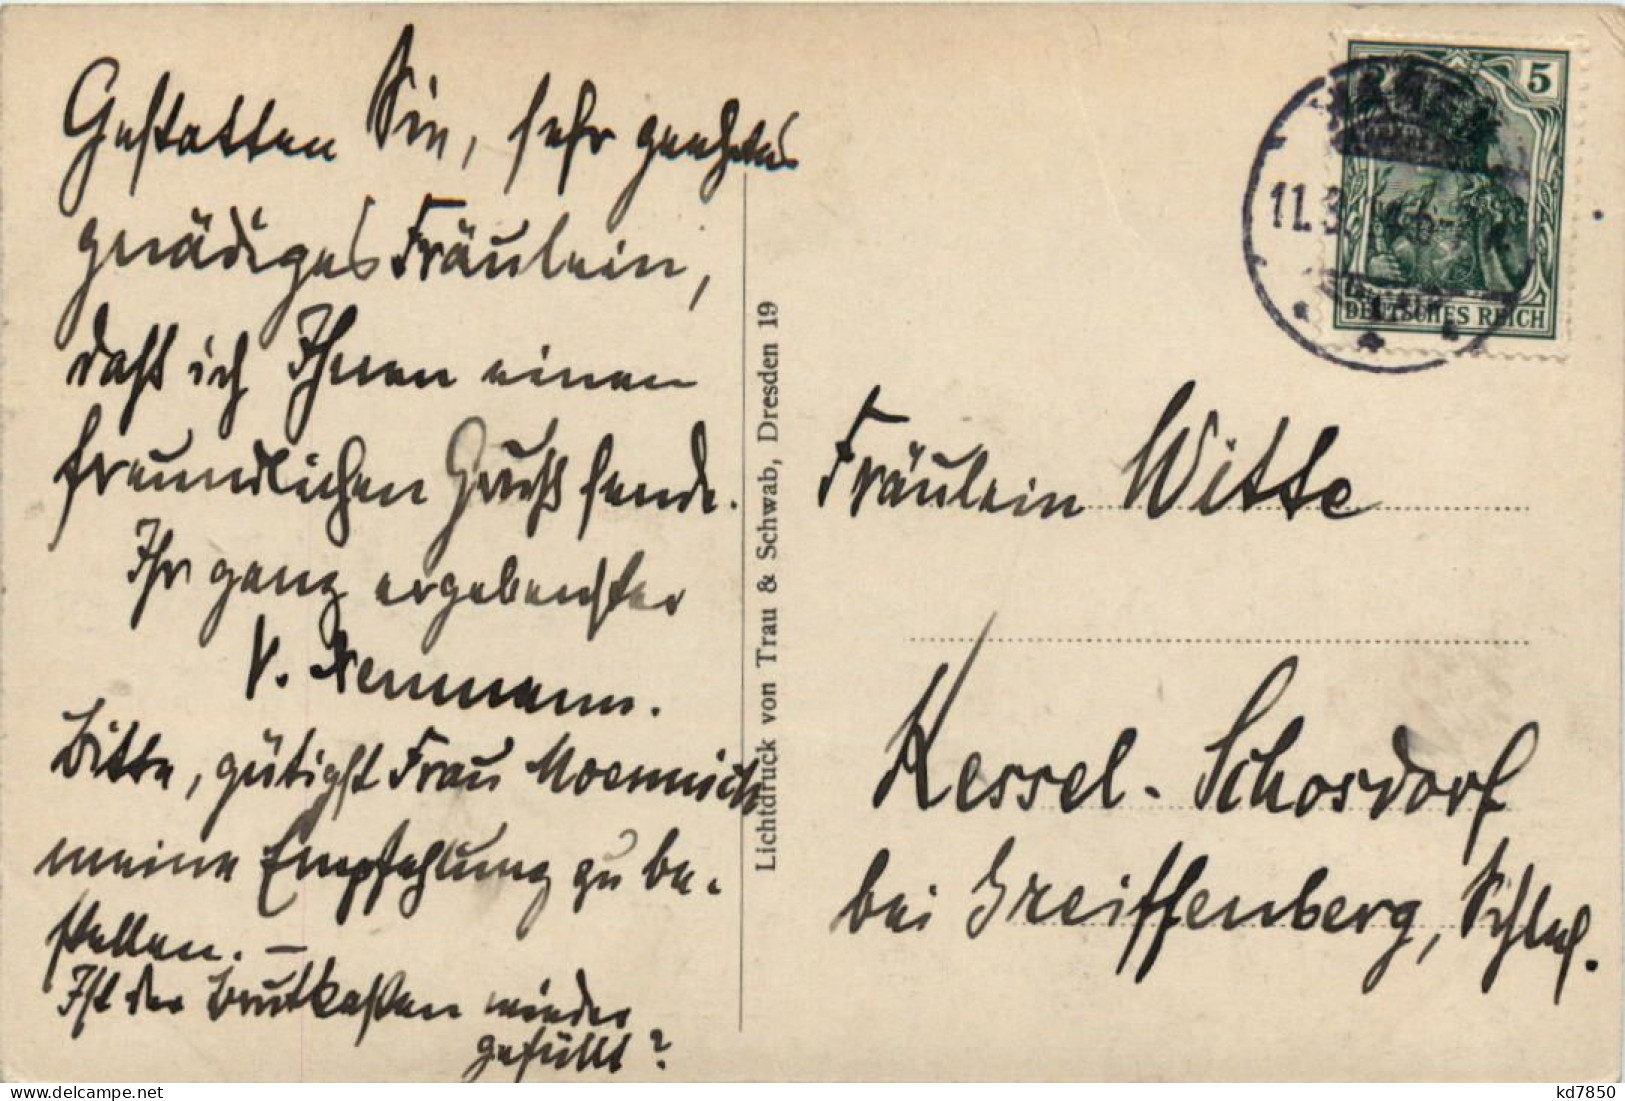 Gestatten Sie, sehr geehrtes
gnädiges Fräulein,
daß ich Ihnen einen
freundlichen Gruß sende.
Ihr ganz ergebenster
V.
Bitte, gütigst Frau
meine Empfehlung zu be-
stellen. –
Ist der Brutkasten wieder
gefüllt?
Lichtdruck von Trau & Schwab, Dresden 19
5
11.3.
DEUTSCHES REICH
Fräulein Witte
Kessel-Schosdorf
bei Greiffenberg, Schles.
kd7850